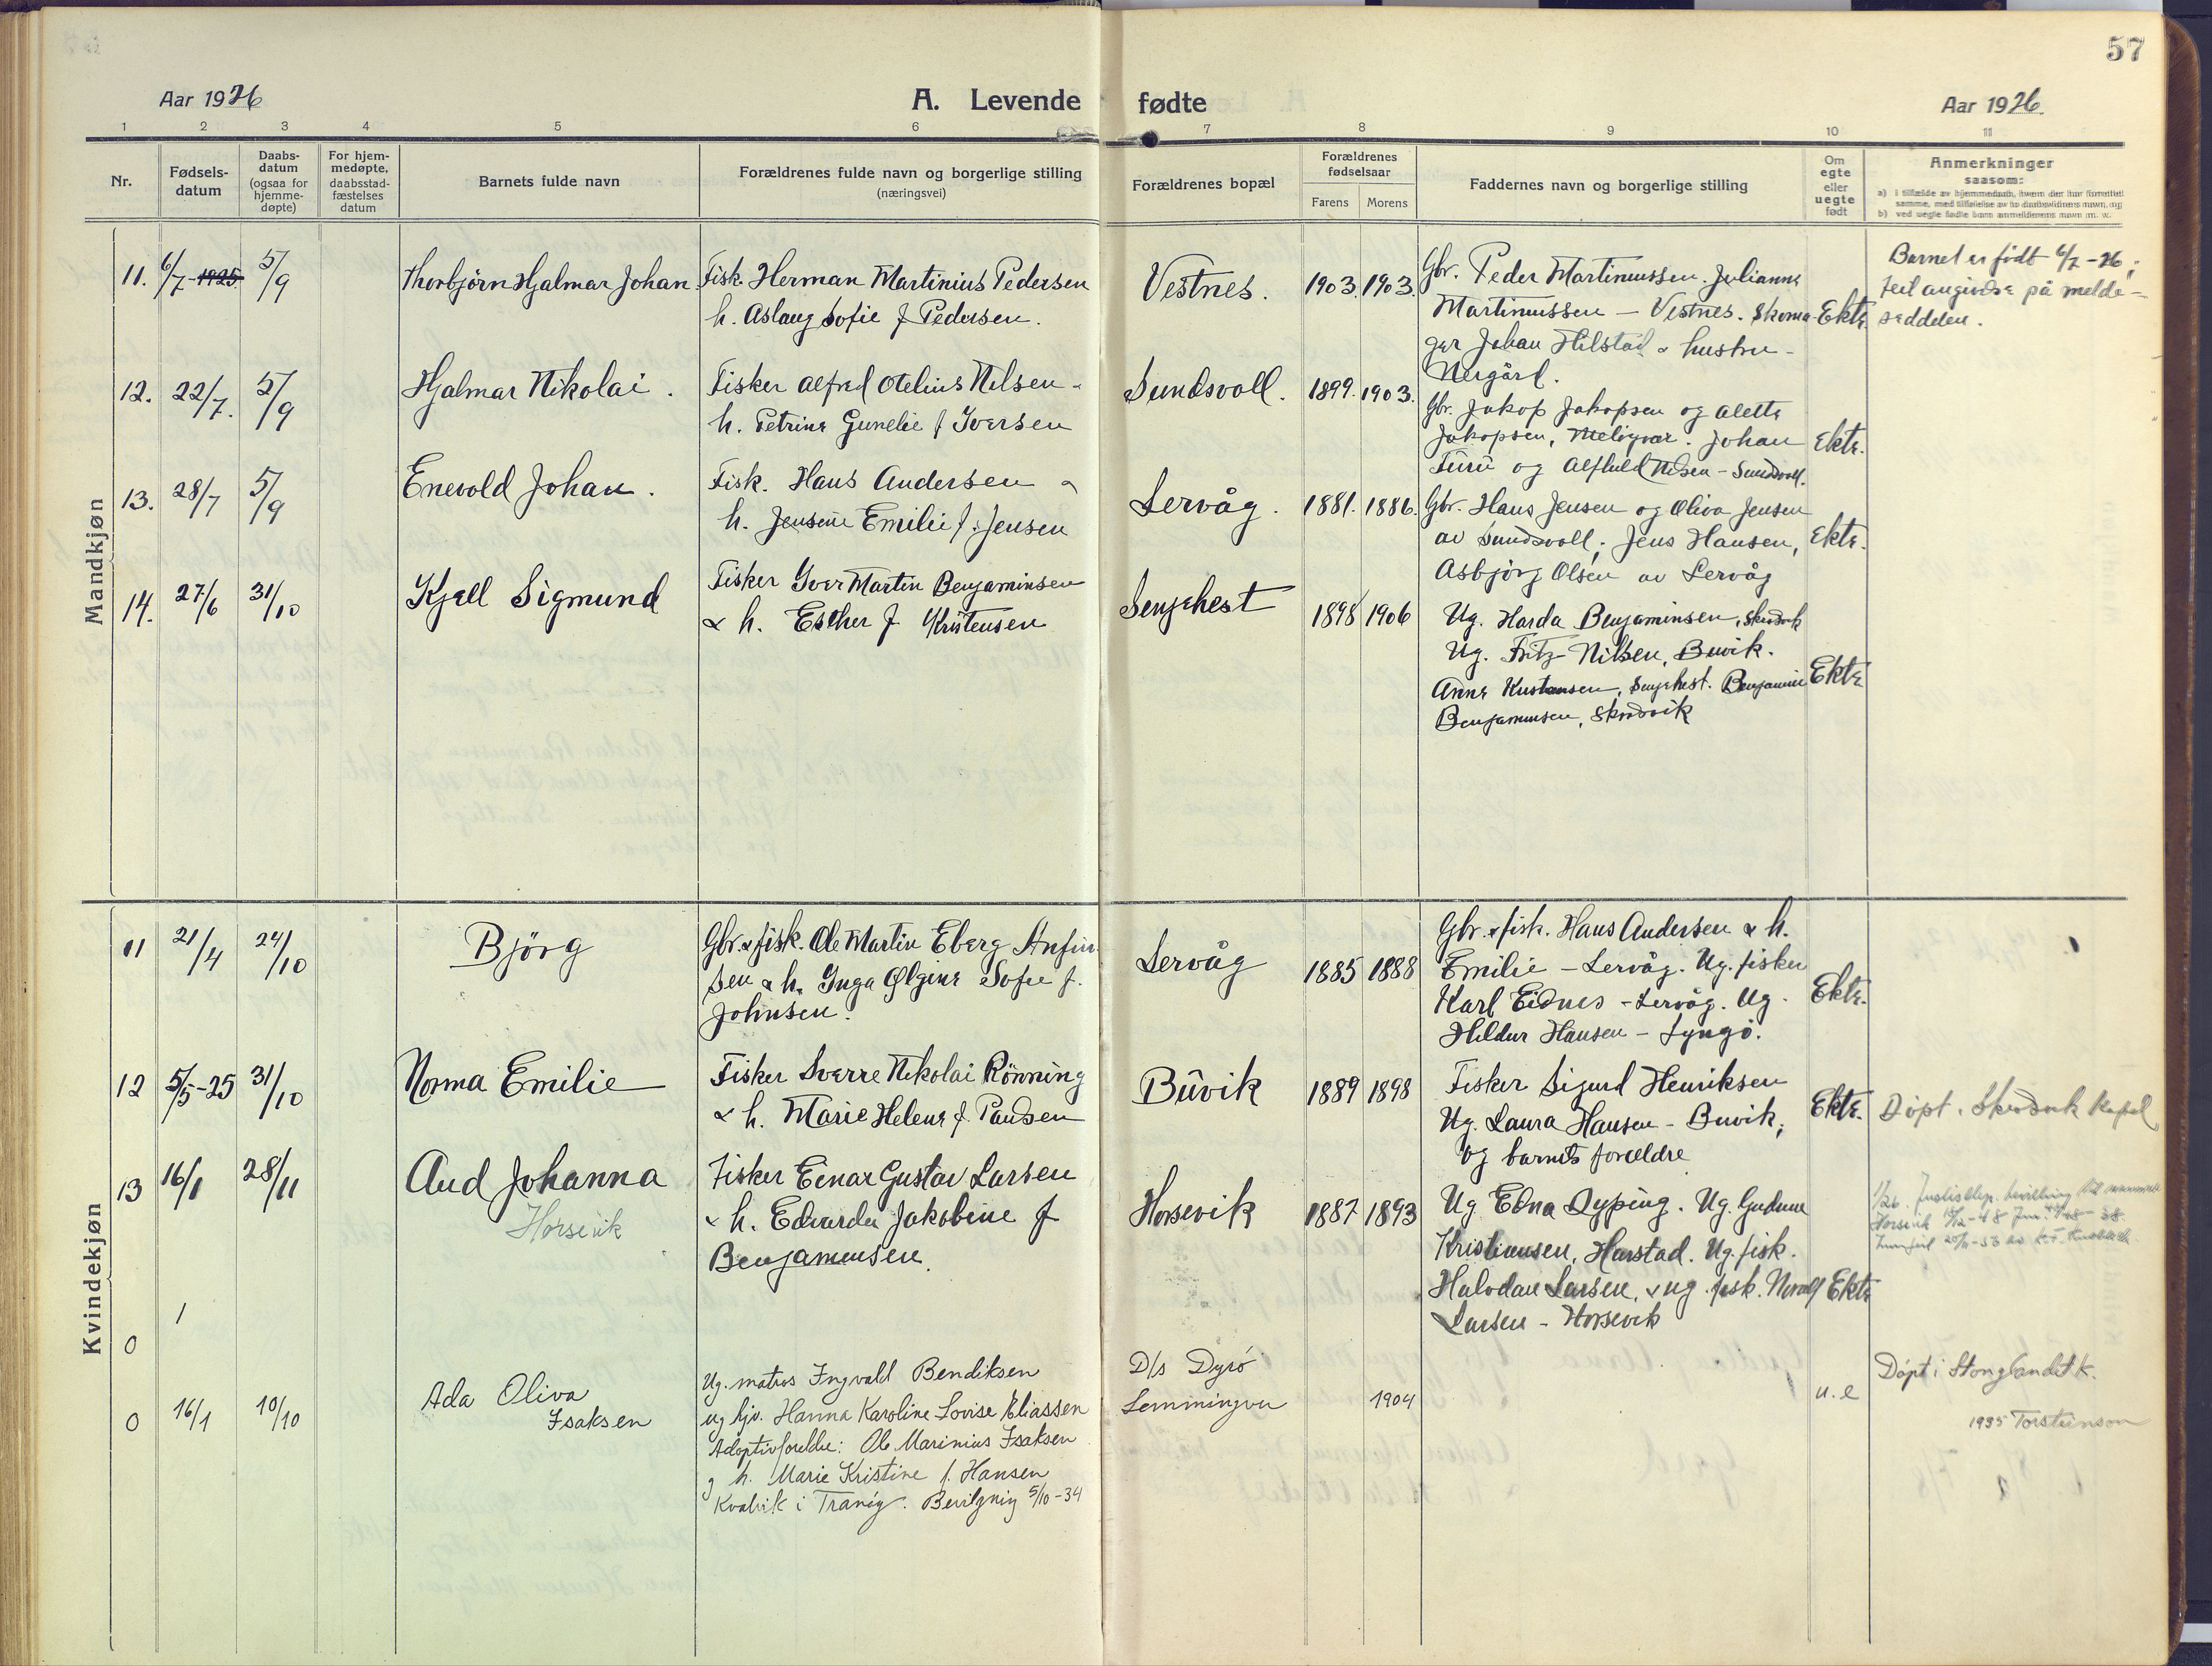 57
Aar 1926
A. Levende fødte
Aar 1926.
1 2 3 4 5 6 7 8 9 10 11
Nr.
Fødsels-
datum
Daabs-
datum
(ogsaa for
hjemme-
døpte)
For hjem-
medøpte,
daabsstad-
fæstelses
datum
Barnets fulde navn
Forældrenes fulde navn og borgerlige stilling
(næringsvei)
Forældrenes bopæl
Forældrenes
fødselsaar
Farens Morens
Faddernes navn og borgerlige stilling
Om
egte
eller
uegte
født
Anmerkninger
saasom:
a) i tilfælde av hjemmedaab, hvem der har forrettet
samme, med tilføielse av to daabsvidners navn, og
b) ved uegte fødte barn anmelderens navn m. v.
Mandkjøn
11. 6/7-1925 5/9
Thorbjørn Hjalmar Johan
Fisk. Herman Martinius Pedersen
h. Aslaug Sofie f Pedersen.
Vestnes.
1903. 1903.
Gbr. Peder Martinussen. Julianne
Martinussen – Vestnes. Skoma-
ger Johan Hilstad & hustru –
Nergård.
Ekte.
Barnet er født 6/7-26;
feil angivelse på melde-
seddelen.
12. 22/7. 5/9
Hjalmar Nikolai.
Fisker Alfred Otelius Nilsen &
h. Petrine Gunelie f Iversen
Sundsvoll.
1899. 1903.
Gbr. Jakop Jakopsen og Alette
Jakopsen, Meløyvær. Johan
Furu og Alfhild Nilsen – Sundsvoll.
Ekte.
13. 28/7 5/9
Enevold Johan.
Fisk. Hans Andersen &
h. Jensine Emilie f. Jensen
Lervåg.
1881. 1886.
Gbr. Hans Jensen og Oliva Jensen
av Sundsvoll; Jens Hansen,
Asbjörg Olsen av Lervåg
Ekte.
14. 27/6 31/10
Kjell Sigmund
Fisker Iver Martin Benjaminsen
& h. Esther f Kristensen
Senjehest
1898 1906
Ug. Harda Benjaminsen, Skrovik
Ug. Fritz Nilsen, Buvik.
Anne Kristensen, Senjehest. Benjamin
Benjaminsen, Skrovik
Ekte
Kvindekjøn
11 21/4 24/10
Björg
Gbr. & fisk. Ole Martin Eberg Anfin-
sen & h. Inga Olgine Sofie f.
Johnsen.
Lervåg
1885 1888
Gbr. & fisk. Hans Andersen & h.
Emilie – Lervåg. Ug. fisker
Karl Eidnes – Lervåg. Ug.
Hildur Hansen – Lyngö.
Ekte.
12 5/5-25 31/10
Norma Emilie
Fisker Sverre Nikolai Rönning
& h. Marie Helene f. Paulsen
Buvik
1889 1898
Fisker Sigurd Henriksen
Ug. Laura Hansen – Buvik;
og barnets forældre
Ekte.
Döpt i Skrovik Kapel
13 16/1 28/11
Aud Johanna
Horsevik
Fisker Einar Gustav Larsen
& h. Edvarda Jakobine f
Benjaminsen.
Horsevik
1887 1893
Ug Edna Dyping. Ug. Gudrun
Kristiansen, Harstad. Ug. fisk.
Halvdan Larsen, & ug. fisk. Norvalf
Larsen – Horsevik
Ekte
bevilling til
Horsevik
0
0 16/1 10/10
Ada Oliva
Isaksen
Ug. matros Ingvald Bendiksen
ug tjv. Hanna Karoline Lovise Eliassen
Adoptivforeldre: Ole Marinius Isaksen
g h. Marie Kristine f. Hansen
Kvalvik i Tranöy. Bevilgnig 5/10-34
D/s Dyrö
Lemmingvær
1904
u.e
Döpt i Stonglandet k.
1935 Torsteinson